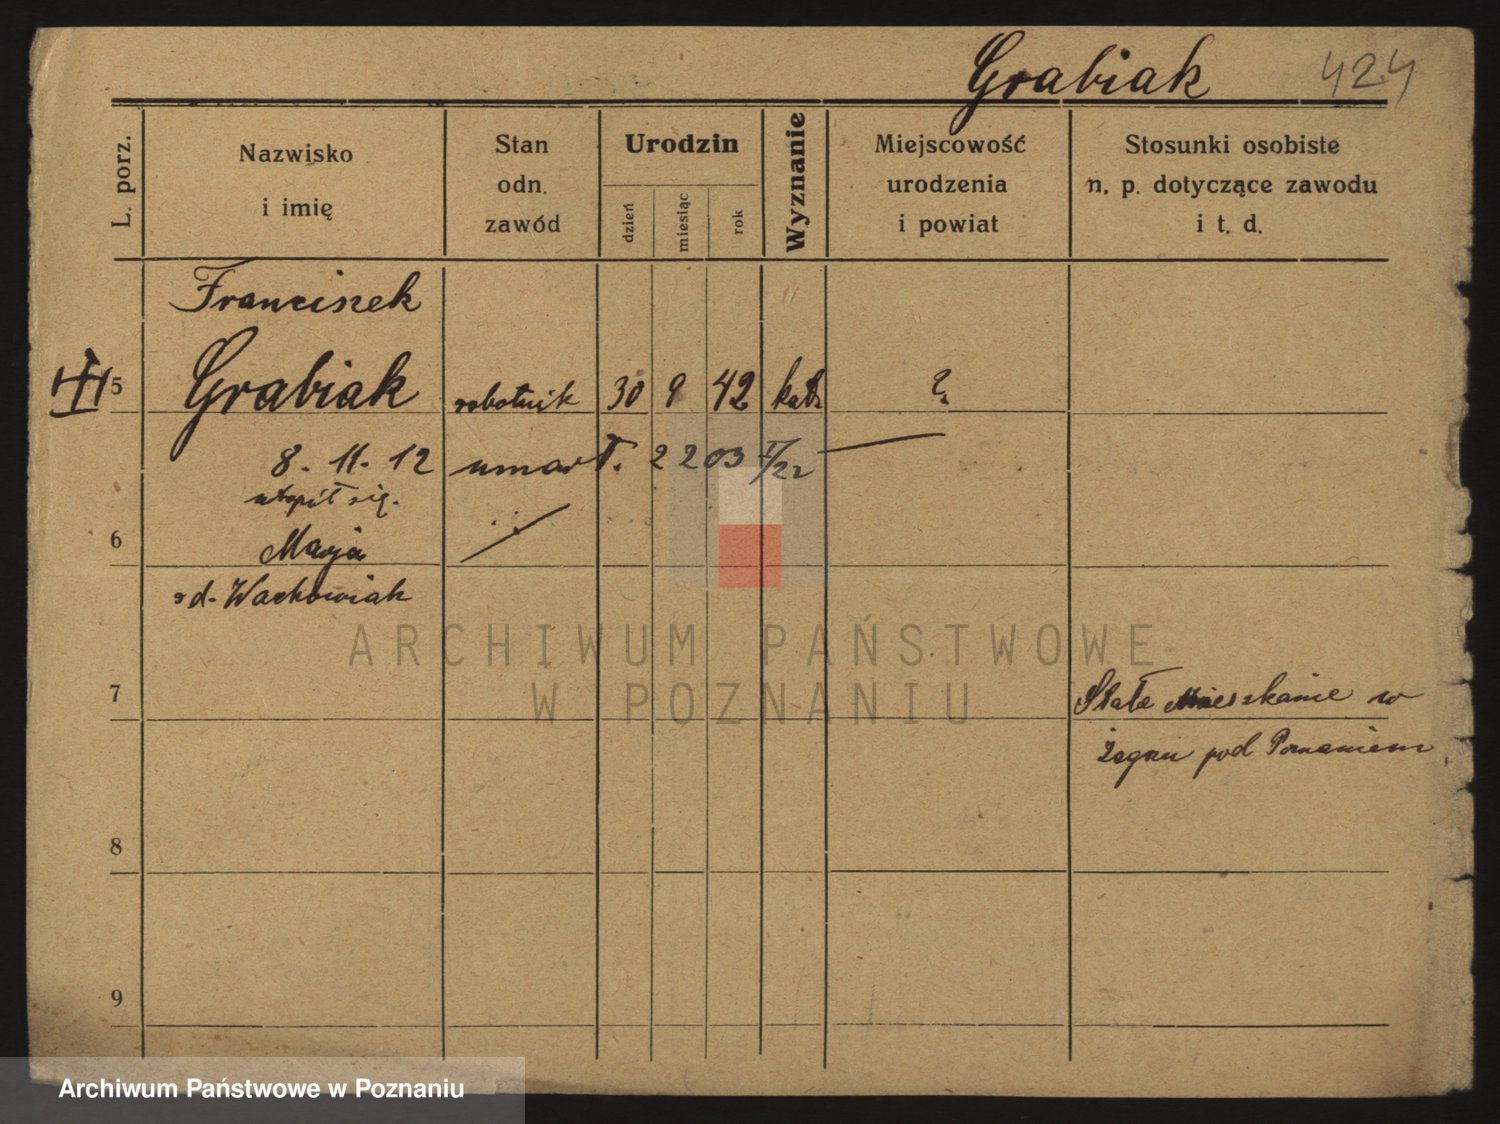 Grabiak 424
L. porz.
Nazwisko
i imię
Stan
odn.
zawód
Urodzin
dzień
miesiąc
rok
Wyznanie
Miejscowość
urodzenia
i powiat
Stosunki osobiste
n. p. dotyczące zawodu
i t. d.
Franciszek
5 Grabiak robotnik 30 9 42 kath ?
8. 11. 12 umarł. 2 2 03 I/22
utopił się.
6 Marja
Wachowiak
ARCHIWUM PAŃSTWOWE
W POZNANIU
7 Stałe Mieszkanie w
Żegrzu pod Poznaniem
8
9
Archiwum Państwowe w Poznaniu